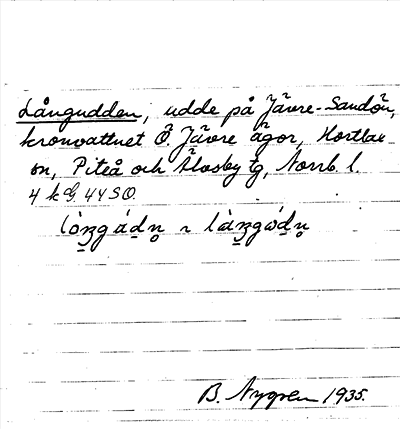 Långudden, udde på Jävre-Sandön,
kronvattnet Ö. Jävre ägor, Hortlax
sn, Piteå och Älvsby tg, Norrb. l.
4 k G. 44 SO.
B. Nygren 1935.